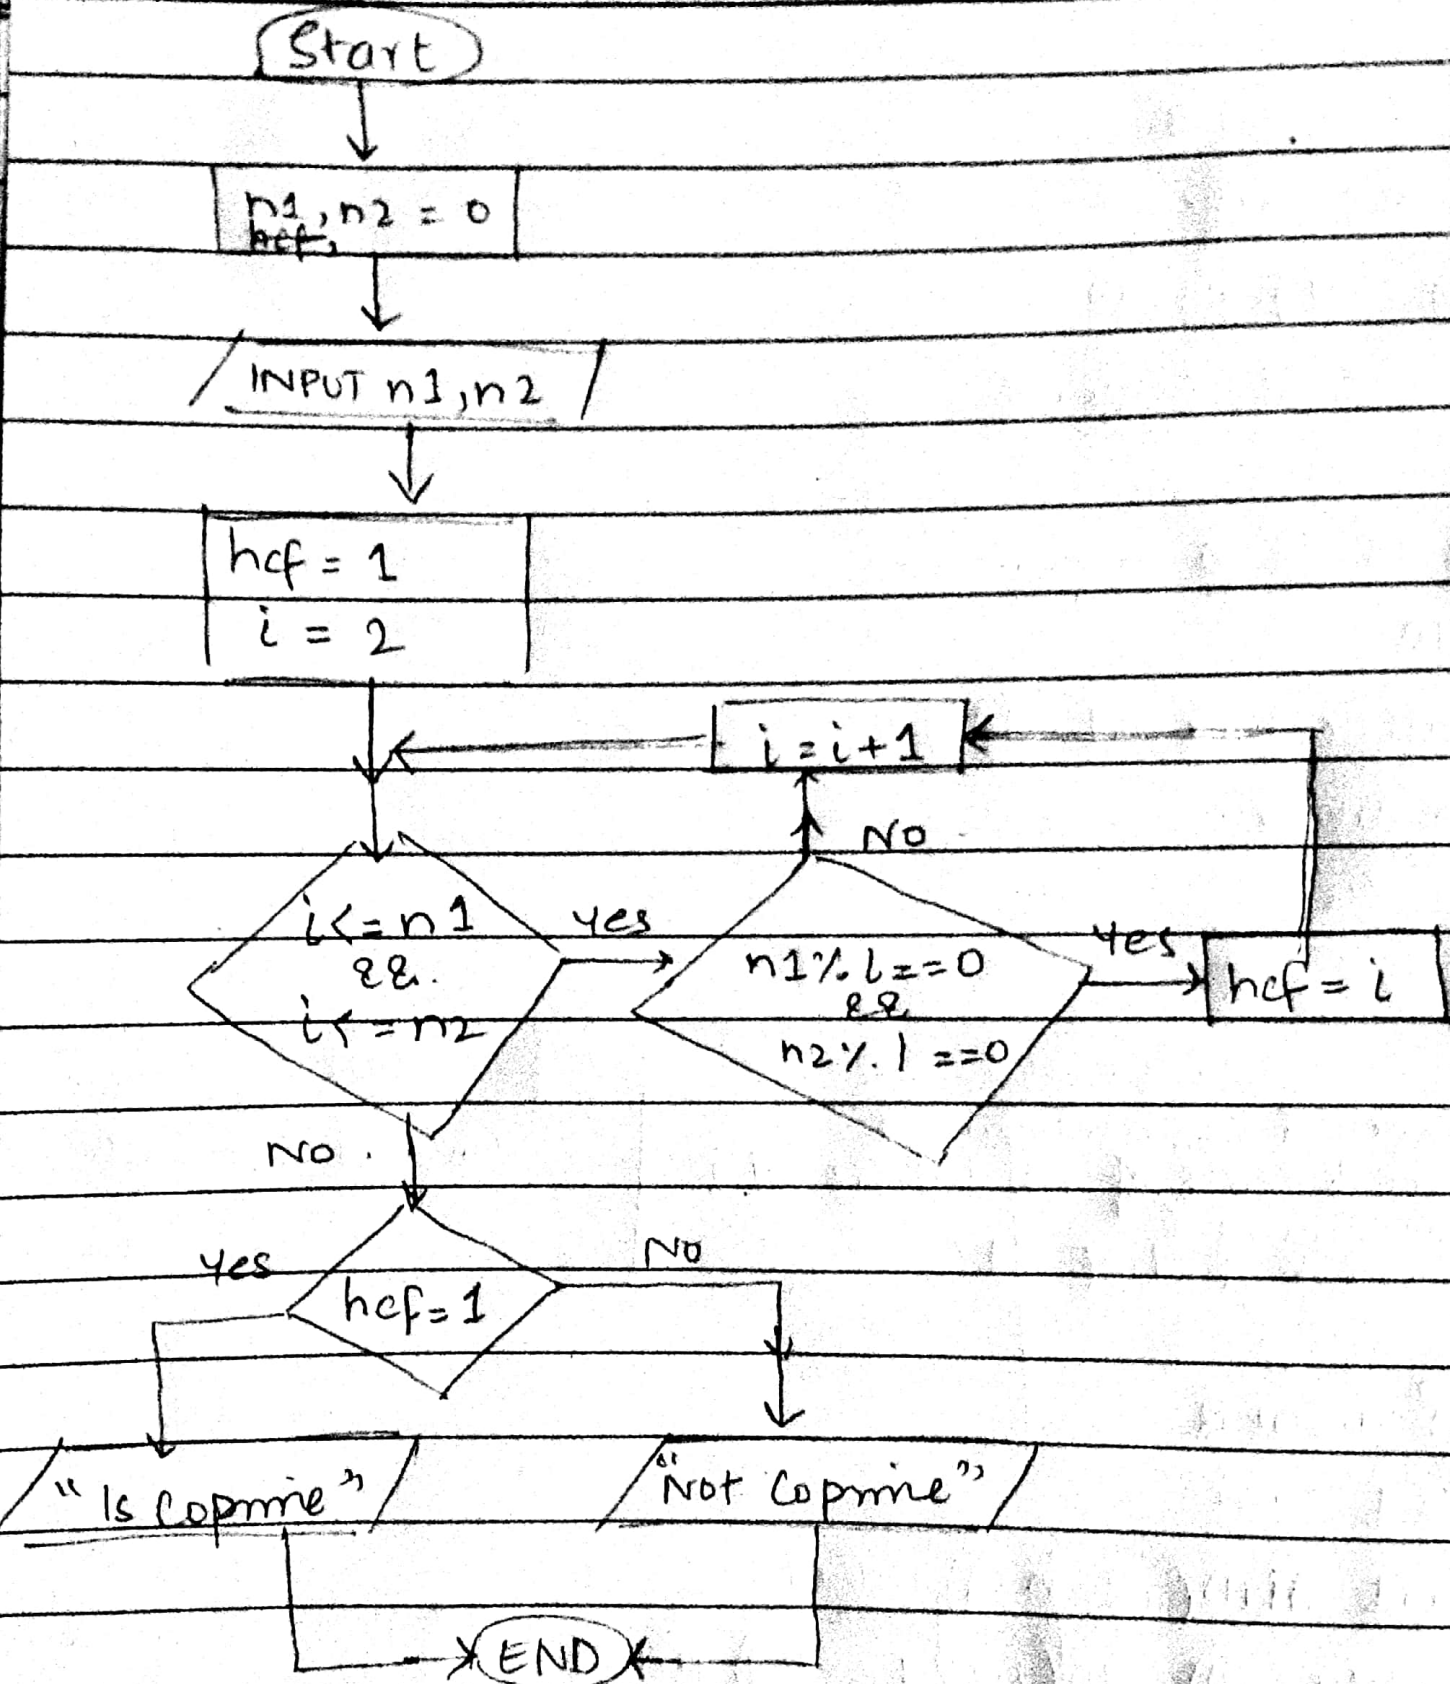 Start
n1, n2 = 0
INPUT n1, n2
hcf = 1
i = 2
i = i + 1
NO
i <= n1
&&
i <= n2
Yes
n1 % i == 0
&&
n2 % i == 0
Yes
hcf = i
NO
hcf = 1
Yes
NO
"Is Coprime"
"Not Coprime"
END